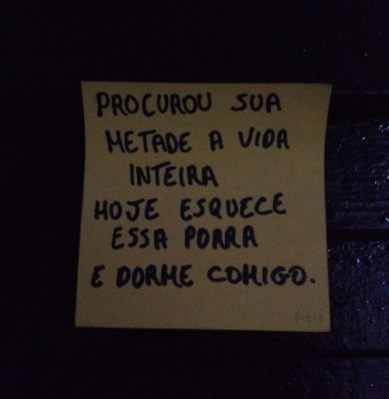 PROCUROU SUA
METADE A VIDA
INTEIRA
HOJE ESQUECE
ESSA PORRA
E DORME COMIGO.